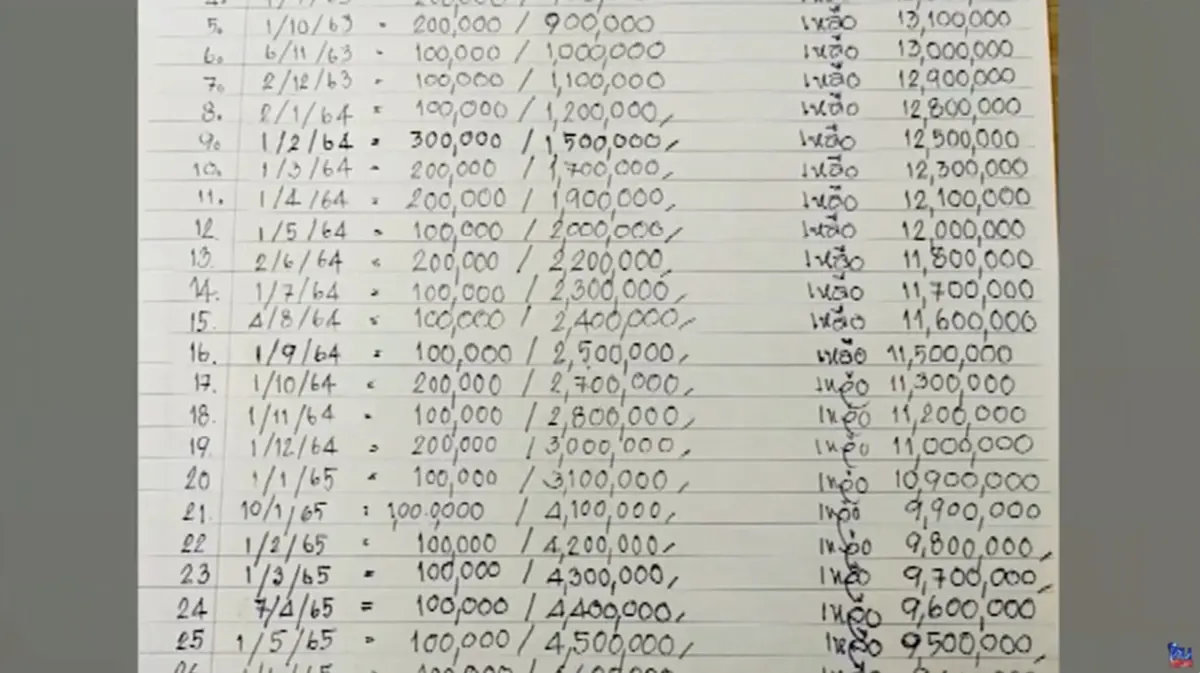 5. 1/10/63 = 200,000 / 900,000 เหลือ 13,100,000
6. 6/11/63 = 100,000 / 1,000,000 เหลือ 13,000,000
7. 2/12/63 = 100,000 / 1,100,000 เหลือ 12,900,000
8. 2/1/64 = 100,000 / 1,200,000, เหลือ 12,800,000
9. 1/2/64 = 300,000 / 1,500,000, เหลือ 12,500,000
10. 1/3/64 = 200,000 / 1,700,000, เหลือ 12,300,000
11. 1/4/64 = 200,000 / 1,900,000, เหลือ 12,100,000
12 1/5/64 = 100,000 / 2,000,000, เหลือ 12,000,000
13. 2/6/64 = 200,000 / 2,200,000, เหลือ 11,800,000
14. 1/7/64 = 100,000 / 2,300,000, เหลือ 11,700,000
15. 4/8/64 = 100,000 / 2,400,000, เหลือ 11,600,000
16. 1/9/64 = 100,000 / 2,500,000, เหลือ 11,500,000
17. 1/10/64 = 200,000 / 2,700,000, เหลือ 11,300,000
18. 1/11/64 = 100,000 / 2,800,000, เหลือ 11,200,000
19. 1/12/64 = 200,000 / 3,000,000, เหลือ 11,000,000
20 1/1/65 = 100,000 / 3,100,000, เหลือ 10,900,000
21. 10/1/65 = 1,00.0,000 / 4,100,000, เหลือ 9,900,000
22 1/2/65 = 100,000 / 4,200,000, เหลือ 9,800,000,
23 1/3/65 = 100,000 / 4,300,000, เหลือ 9,700,000,
24 7/4/65 = 100,000 / 4,400,000, เหลือ 9,600,000
25 1/5/65 = 100,000 / 4,500,000, เหลือ 9,500,000,